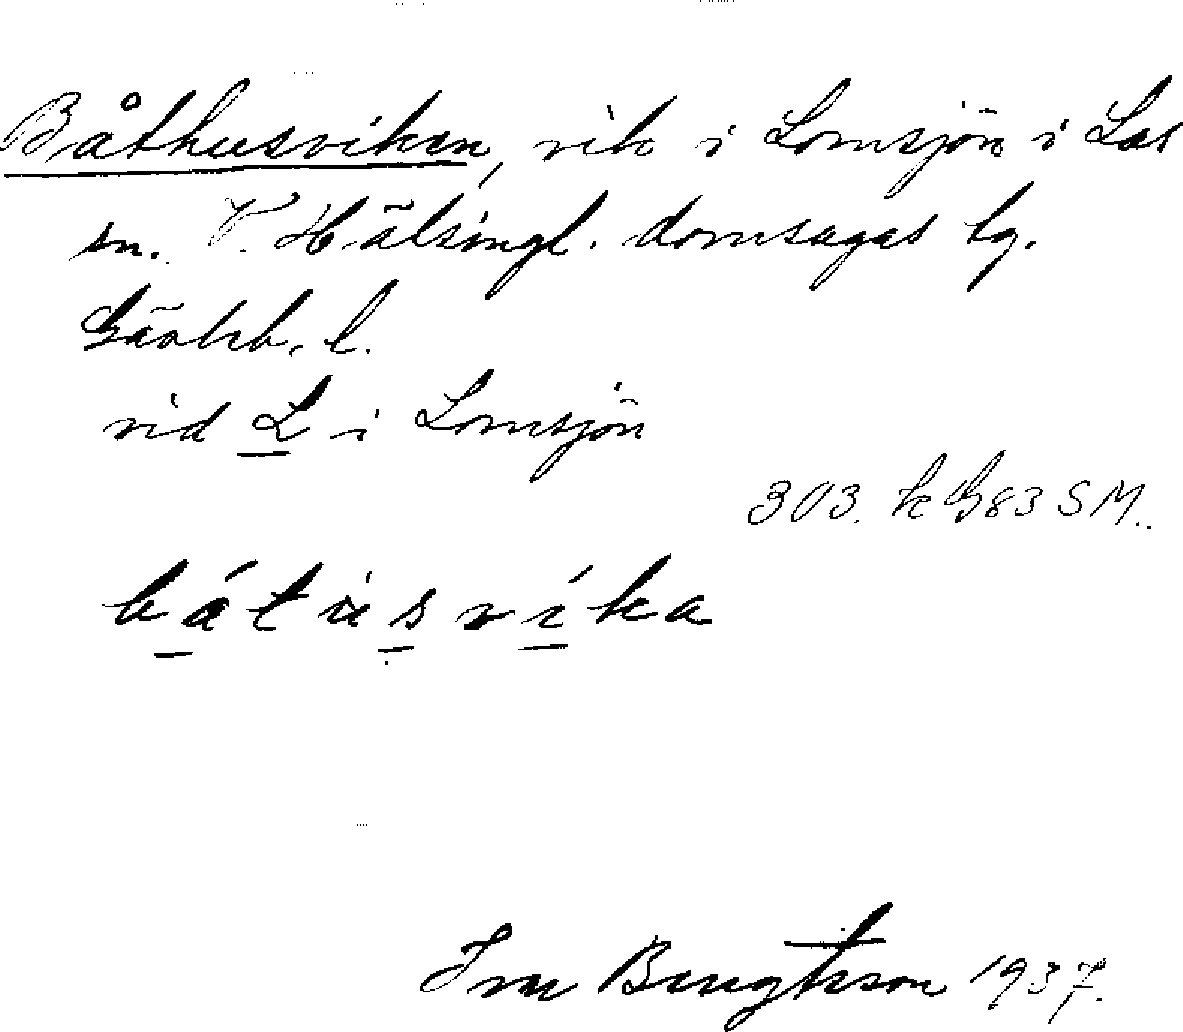 Båthusviken, vik i Lomsjön i Los
sn. V. Hälsingl. domsagas tg.
Gävleb. l.
vid L i Lomsjön
303. k G83 SM.
bátùsvíka
Bengtsson 1937.